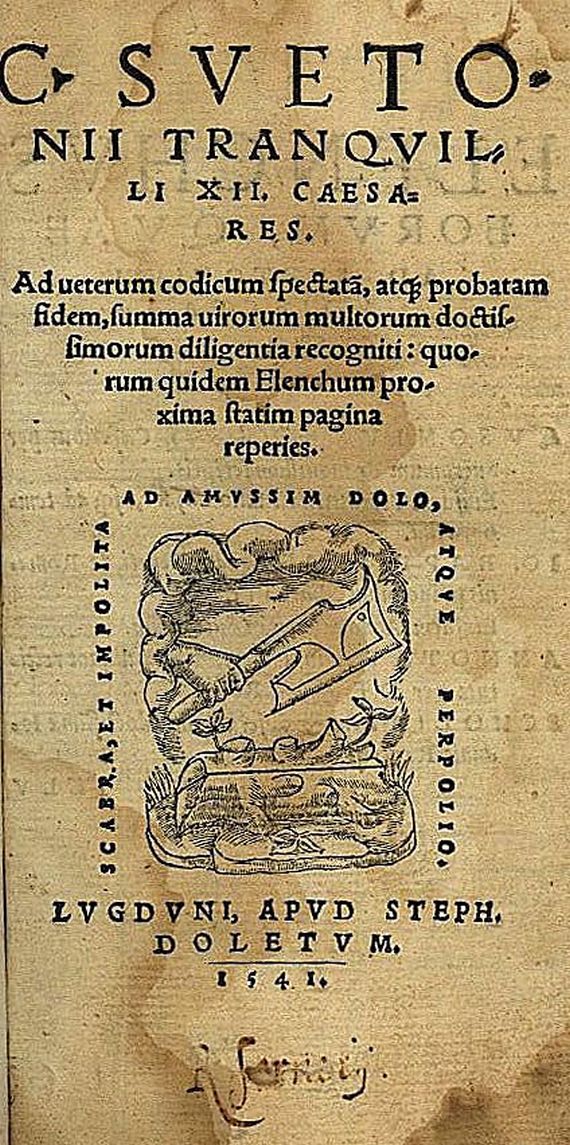 C. SVETO-
NII TRANQVIL-
LI XII. CAESA=
RES.
Ad ueterum codicum spectatã, atq; probatam
fidem, summa uirorum multorum doctis-
simorum diligentia recogniti: quo-
rum quidem Elenchum pro-
xima statim pagina
reperies.
SCABRA, ET IMPOLITA
AD AMVSSIM DOLO,
ATQVE PERPOLIO.
LVGDVNI, APVD STEPH.
DOLETVM.
1541.